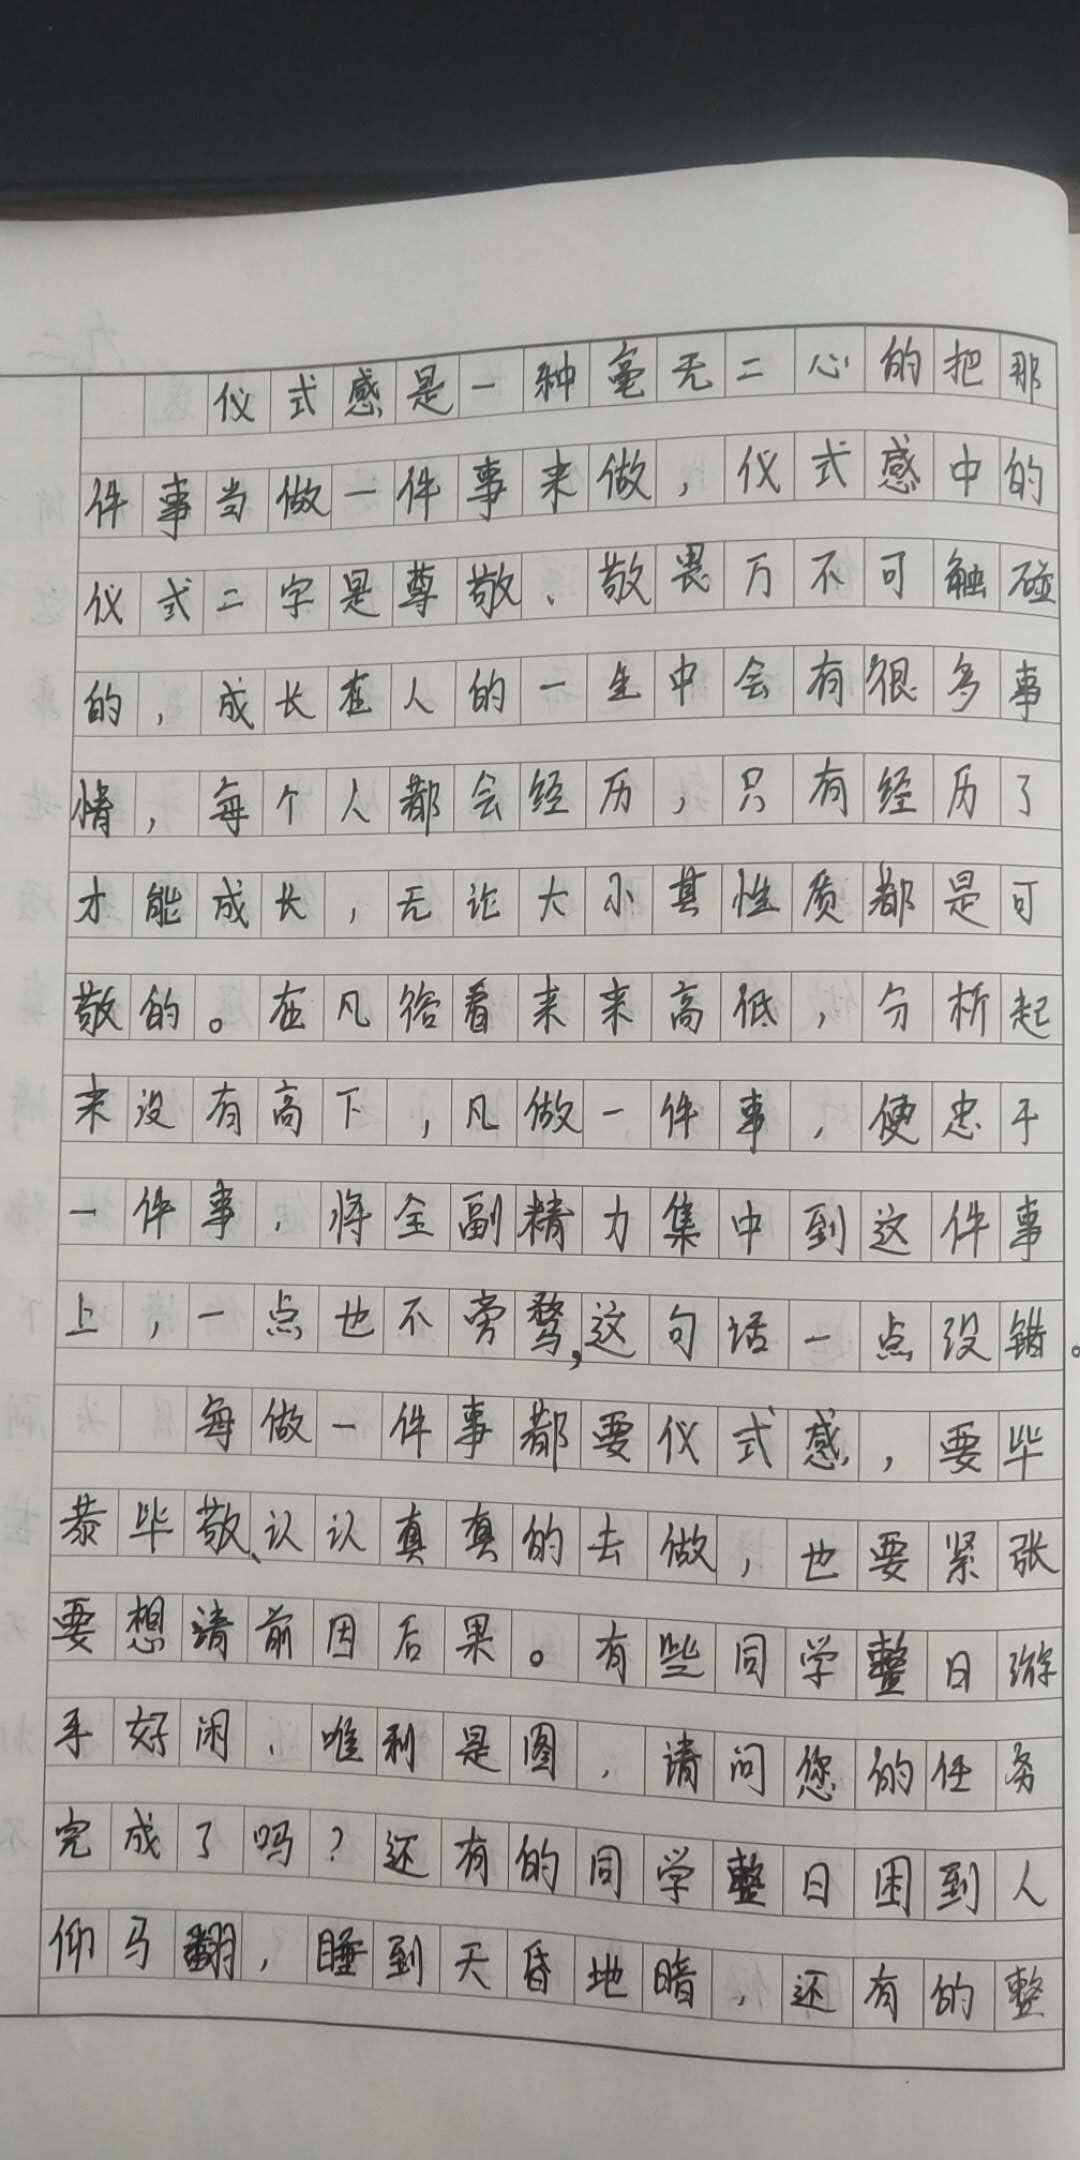 仪式感是一种毫无二心的把那
件事当做一件事来做，仪式感中的
仪式二字是尊敬、敬畏万不可触碰
的，成长在人的一生中会有很多事
情，每个人都会经历，只有经历了
才能成长，无论大小其性质都是可
敬的。在凡俗看来来高低，分析起
来没有高下，凡做一件事，便忠于
一件事，将全副精力集中到这件事
上，一点也不旁骛，这句话一点没错。
每做一件事都要仪式感，要毕
恭毕敬、认认真真的去做，也要紧张
要想请前因后果。有些同学整日游
手好闲、唯利是图，请问您的任务
完成了吗？还有的同学整日困到人
仰马翻，睡到天昏地暗，还有的整